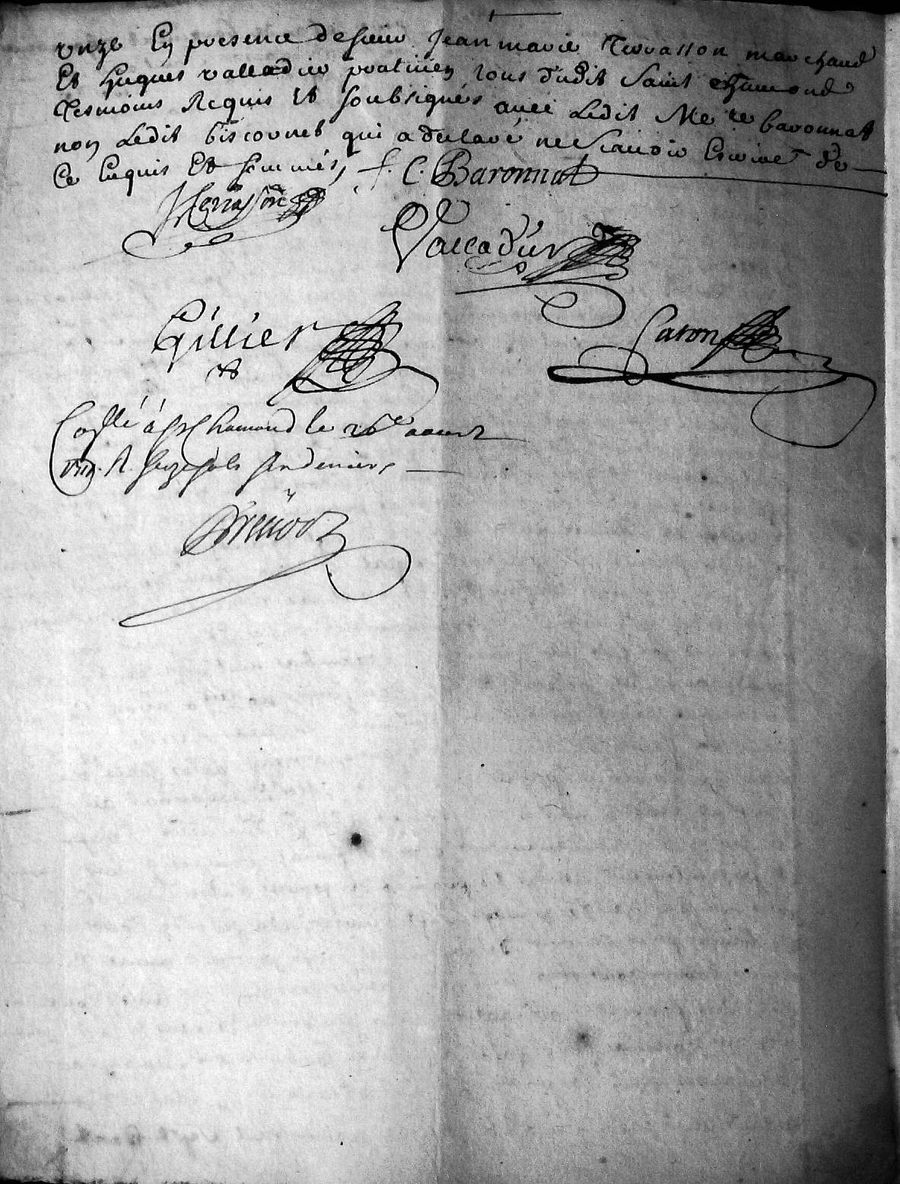 unze En presence de sieur Jean marie Terrasson marchand
Et hugues valladier praticien tous dudit Saint chamond
Tesmoins Requis Et soubsignés avec Ledit Me Baronnat
non Ledit biscornet qui a declaré ne scavoir Escrire de
Ce Enquis Et sommés f. C. Baronnat
Terrasson
Valladier
Gillier
Caron
Con̄llé á St Chamond le aoust
R seize sols six deniers